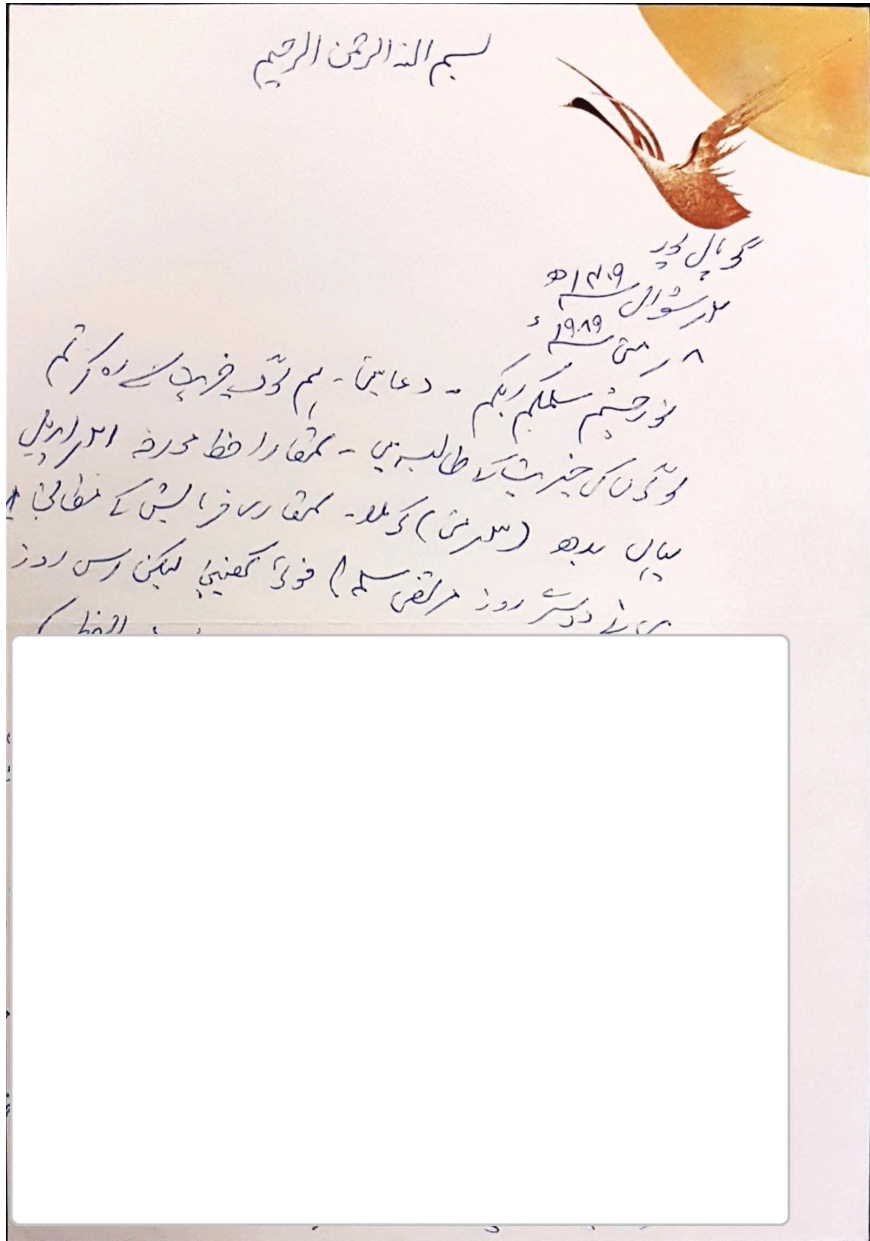 بسم اللہ الرحمن الرحیم
گوپال پور
شوال ۱۴۰۹ھ
۸ر مئی ۱۹۸۹ء
نورچشم سلمکم ربکم - دعائیں - ہم لوگ خیریت سے رہ کر تم
لوگوں کی خیریت کے طالب ہیں - تمھارا خط مورخہ اپریل
یہاں بدھ (۳ر مئی) کو ملا - تمھاری فرمایش کے مطابق
میں نے دوسرے روز مرتضیٰ سلمہ فوٹو کھنچے لیکن اس روز